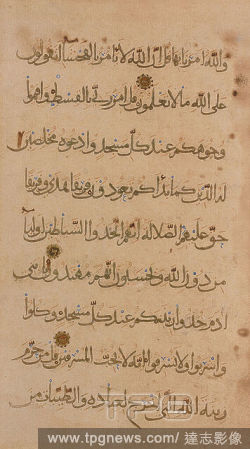 والله امرنا بها قل ان الله لا يامر بالفحشا اتقولون
على الله ما لا تعلمون قل امر ربي بالقسط واقيموا
وجوهكم عند كل مسجد وادعوه مخلصين
له الدين كما بداكم تعودون فريقا هدى وفريقا
حق عليهم الضلالة انهم اتخذوا الشياطين اوليا
من دون الله ويحسبون انهم مهتدون يا بني
ادم خذوا زينتكم عند كل مسجد وكلوا
واشربوا ولا تسرفوا انه لا يحب المسرفين قل من حرم
زينة الله التي اخرج لعباده والطيبات من
www.tpgnews.com / 達志影像